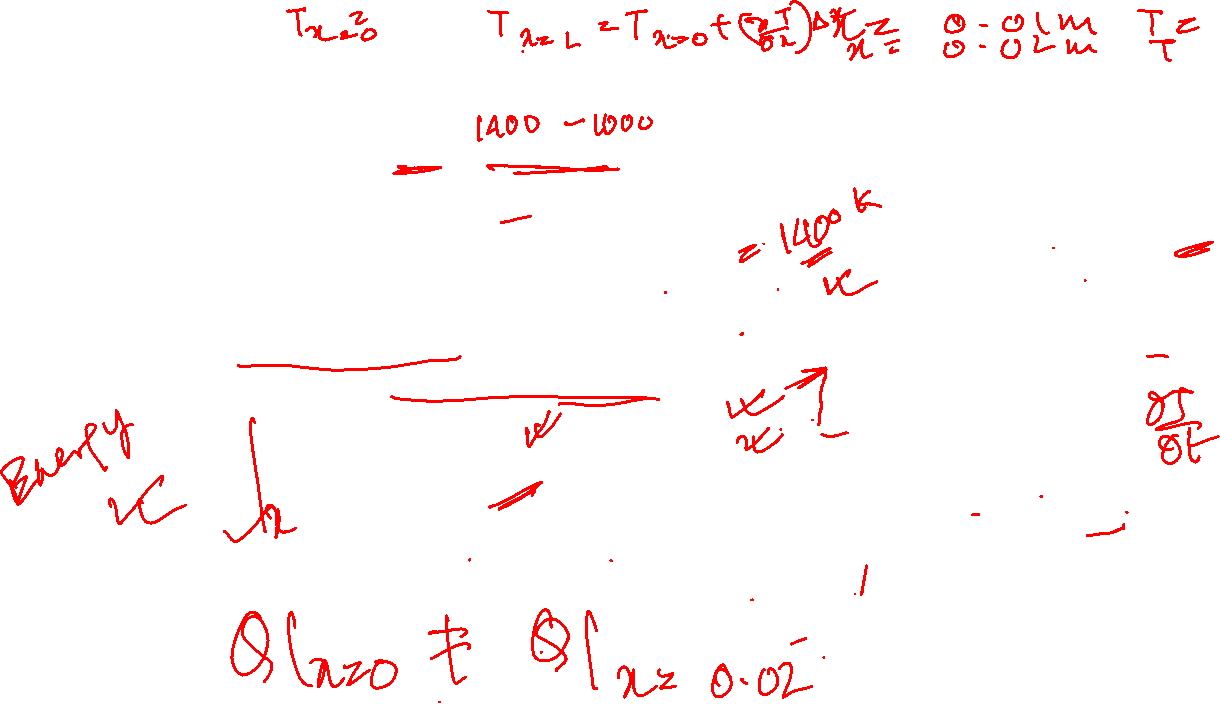 T x=0 T x=L = T x=0 + (∂T/∂x) Δx x = 0.01m T =
x = 0.02m T
1400 - 1000
= 1400 K
Energy
x
∂T/∂t
Q|x=0 ≠ Q|x= 0.02